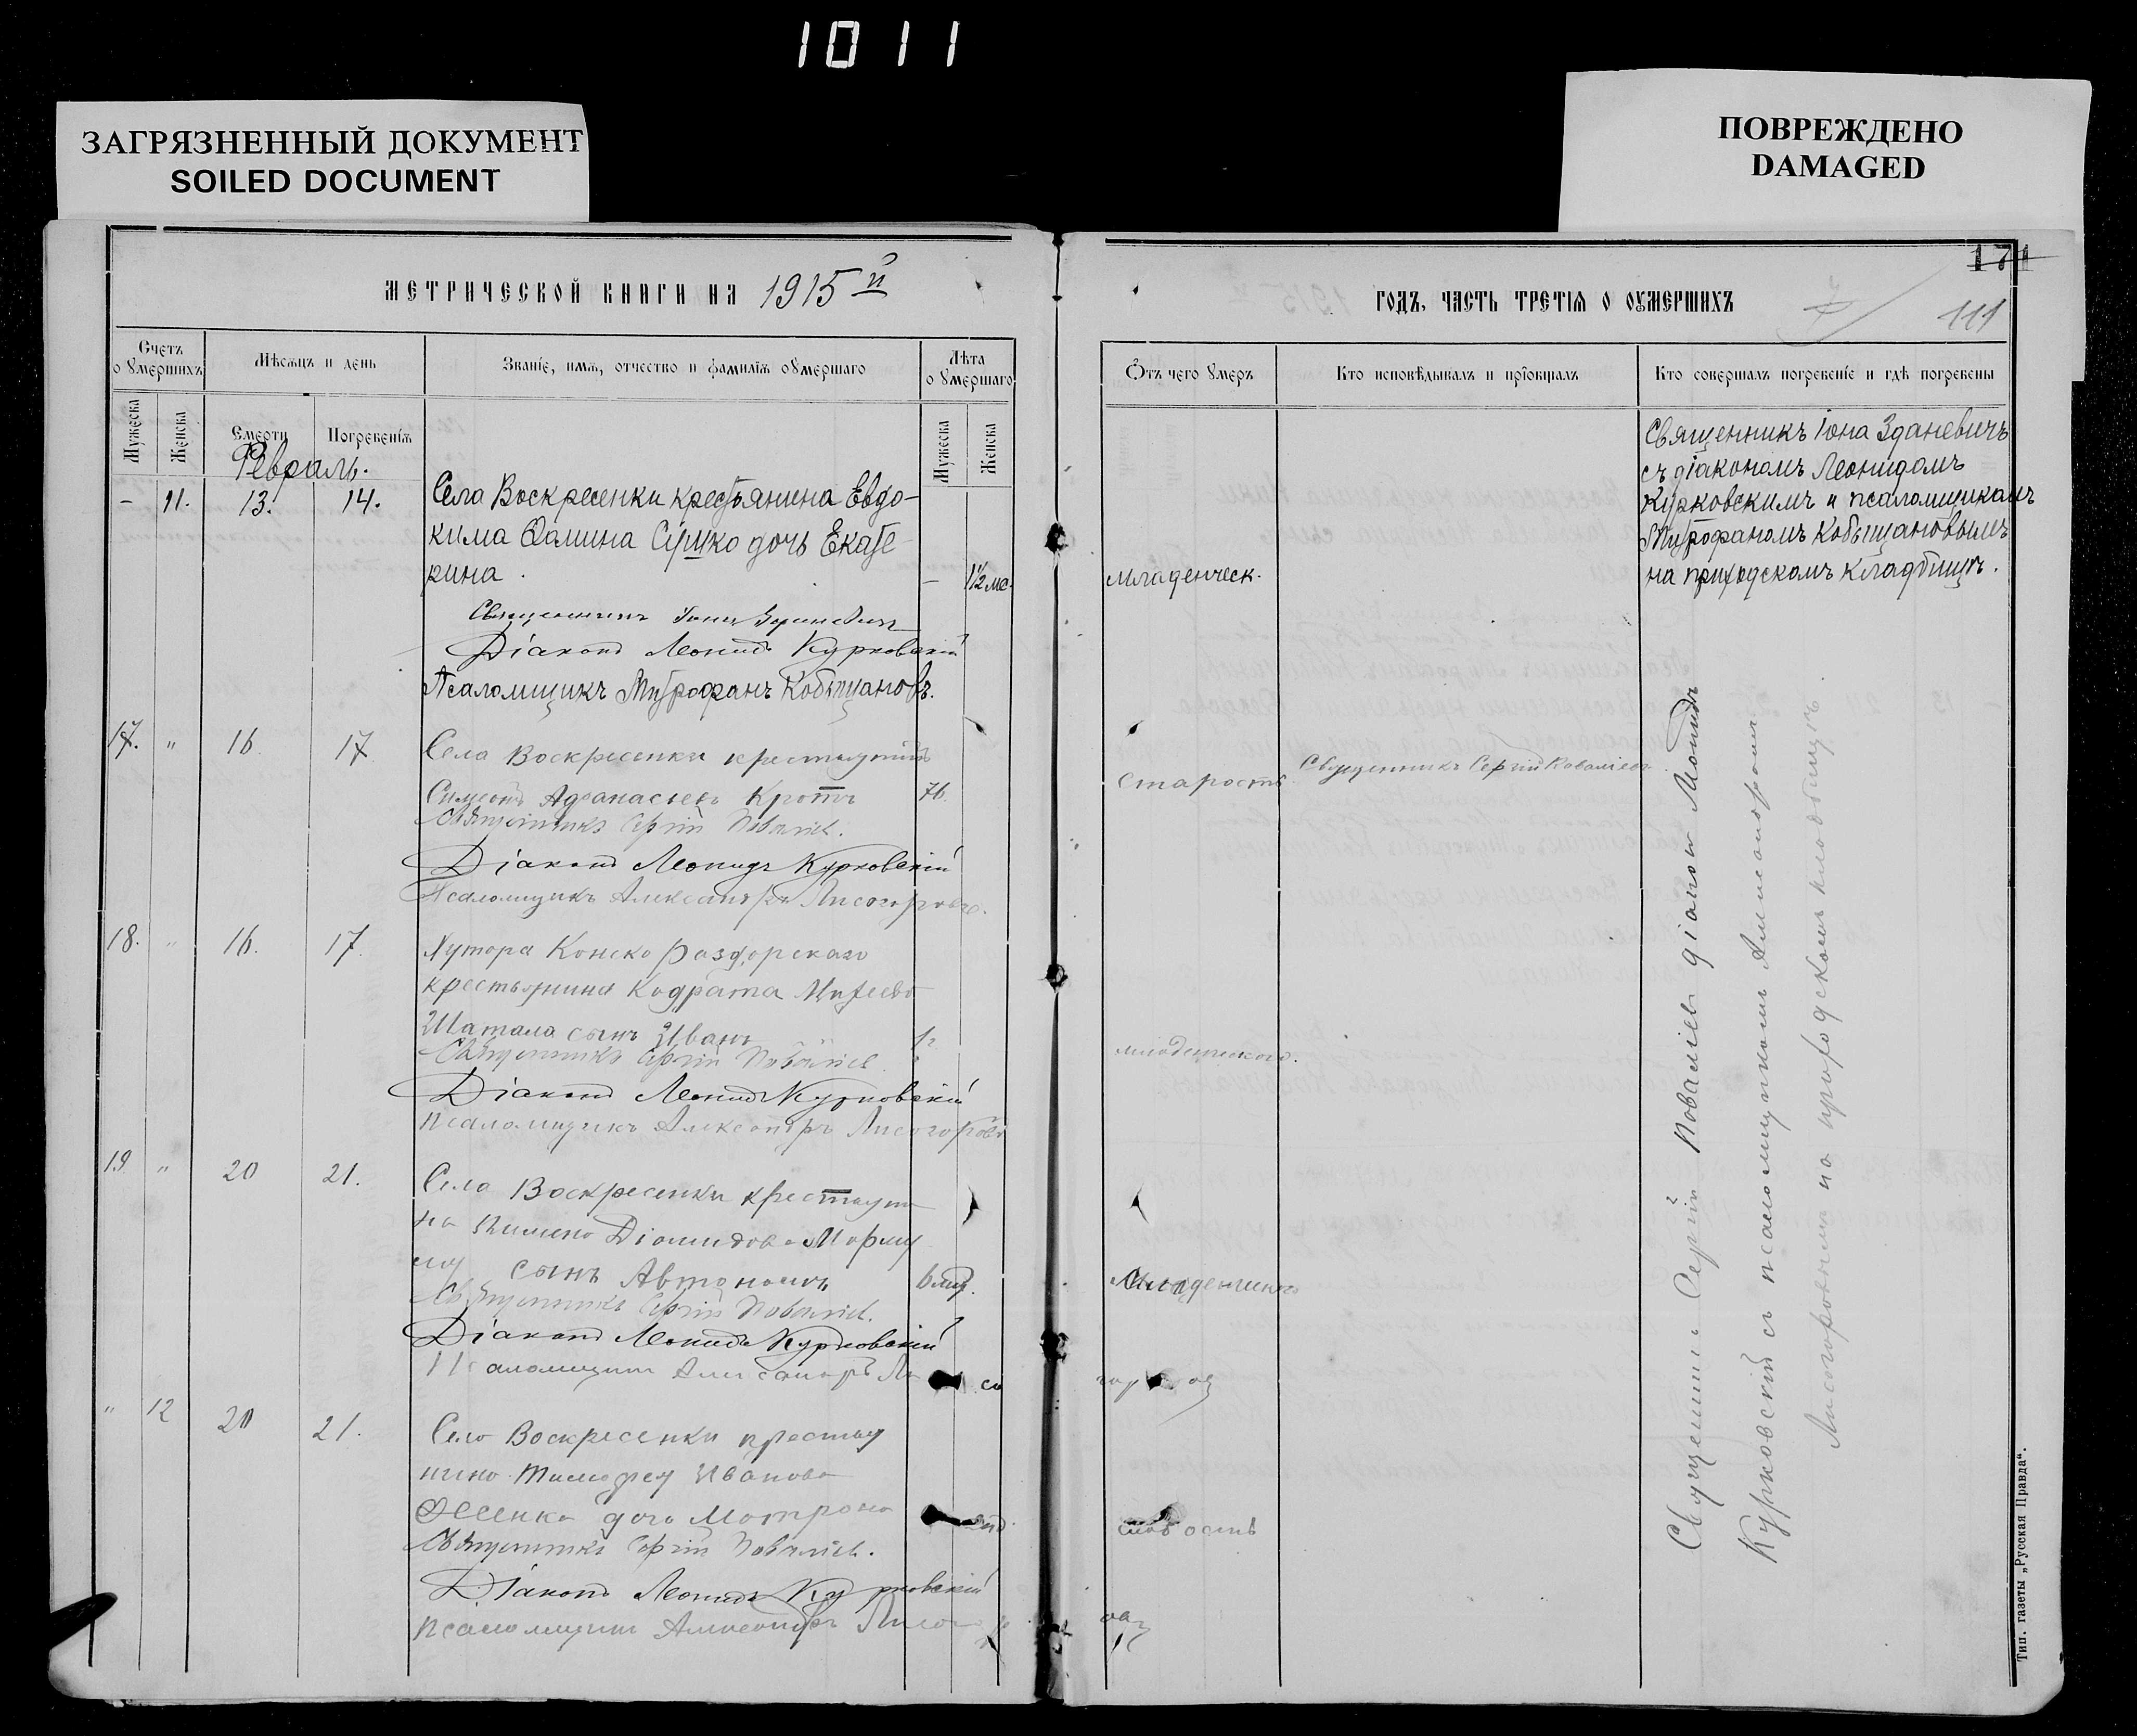 1011
ЗАГРЯЗНЕННЫЙ ДОКУМЕНТ
SOILED DOCUMENT
ПОВРЕЖДЕНО
DAMAGED
МЕТРИЧЕСКОЙ КНИГИ НА 1915 й
Счетъ о умершихъ
Мѣсяцъ и день
Званіе, имя, отчество и фамилія умершаго
Лѣта умершаго
Мужеска
Женска
Смерти
Погребенія
Мужеска
Женска
Февраль.
– 11. 13. 14.
Села Воскресенки крестьянина Евдо-
кима Фомина Сушко дочь Екате-
рина.
– 1½ мс.
Священникъ Іона Зданевичъ
Діаконъ Леонидъ Курковскій
Псаломщикъ Митрофанъ Кобыщановъ.
17. " 16 17
Села Воскресенки крестьянинъ
Симеонъ Афанасьевъ Кротъ
76.
Священникъ Сергій
Діаконъ Леонидъ Курковскій
Псаломщикъ Александръ Лисогоровъ.
18. " 16. 17.
Хутора Конско Раздорскаго
крестьянина Кодрата Михеева
Шатала сынъ Иванъ
1 г
Священникъ Сергій
Діаконъ Леонидъ Курковскій
Псаломщикъ Александръ Лисогоровъ
19 " 20 21.
Села Воскресенки крестьяни
на Діомидова
сынъ Автономъ
6 мѣс.
Священникъ Сергій
Діаконъ Леонидъ Курковскій
Псаломщикъ Александръ Лисо
горовъ
" 12 20 21.
Села Воскресенки крестья
нина Тимофея Иванова
дочь Матрона
Священникъ Сергій
Діаконъ Леонидъ Курковскій
Псаломщикъ Александръ Лисого
ровъ
171
111
ГОДЪ, ЧАСТЬ ТРЕТІЯ О УМЕРШИХЪ
Отъ чего умеръ
Кто исповѣдывалъ и пріобщалъ
Кто совершалъ погребеніе и гдѣ погребены
младенческ.
Священникъ Іона Зданевичъ
съ діакономъ Леонидомъ
Курковскимъ и псаломщикомъ
Митрофаномъ Кобыщановымъ
на приходскомъ кладбищѣ.
старость
Священникъ Сергій
младенческаго.
слабость
Священникъ Сергій діакон Леонидъ
Курковскій съ псаломщикомъ Александромъ
Лисогоровымъ на приходскомъ кладбищѣ
Тип. газеты „Русская Правда“.